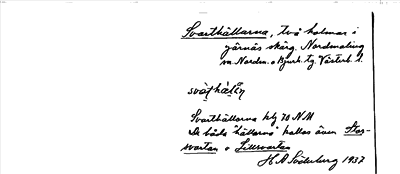 Svarthällarna, två holmar i
Järnäs skärg. Nordmaling
sn. Nordm. o Bjurh. tg. Västerb. l.
Svarthällarna blz 70 NM
De båda "hällarna" kallas även Stor-
svartan o Lillsvartan
H A Söderberg 1937